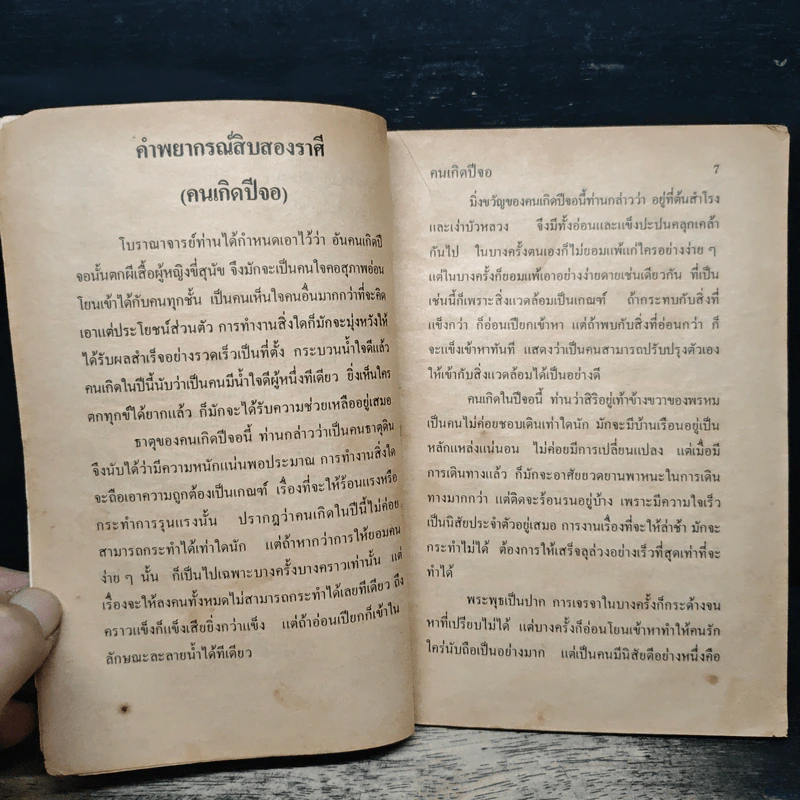 คำพยากรณ์สิบสองราศี
(คนเกิดปีจอ)
โบราณาจารย์ท่านได้กำหนดเอาไว้ว่า อันคนเกิดปี
จอนั้นตกผีเสื้อผู้หญิงขี่สุนัข จึงมักจะเป็นคนใจคอสุภาพอ่อน
โยนเข้าได้กับคนทุกชั้น เป็นคนเห็นใจคนอื่นมากกว่าที่จะคิด
เอาแต่ประโยชน์ส่วนตัว การทำงานสิ่งใดก็มักจะมุ่งหวังให้
ได้รับผลสำเร็จอย่างรวดเร็วเป็นที่ตั้ง กระบวนน้ำใจดีแล้ว
คนเกิดในปีนี้นับว่าเป็นคนมีน้ำใจดีผู้หนึ่งทีเดียว ยิ่งเห็นใคร
ตกทุกข์ได้ยากแล้ว ก็มักจะได้รับความช่วยเหลืออยู่เสมอ
ธาตุของคนเกิดปีจอนี้ ท่านกล่าวว่าเป็นคนธาตุดิน
จึงนับได้ว่ามีความหนักแน่นพอประมาณ การทำงานสิ่งใด
จะถือเอาความถูกต้องเป็นเกณฑ์ เรื่องที่จะให้ร้อนแรงหรือ
กระทำการรุนแรงนั้น ปรากฎว่าคนเกิดในปีนี้ไม่ค่อย
สามารถกระทำได้เท่าใดนัก แต่ถ้าหากว่าการให้ยอมคน
ง่าย ๆ นั้น ก็เป็นไปเฉพาะบางครั้งบางคราวเท่านั้น แต่
เรื่องจะให้ลงคนทั้งหมดไม่สามารถกระทำได้เลยทีเดียว ถึง
คราวแข็งก็แข็งเสียยิ่งกว่าแข็ง แต่ถ้าอ่อนเปียกก็เข้าใน
ลักษณะละลายน้ำได้ทีเดียว
คนเกิดปีจอ 7
มิ่งขวัญของคนเกิดปีจอนี้ท่านกล่าวว่า อยู่ที่ต้นสำโรง
และเง่าบัวหลวง จึงมีทั้งอ่อนและแข็งปะปนคลุกเคล้า
กันไป ในบางครั้งตนเองก็ไม่ยอมแพ้แก่ใครอย่างง่าย ๆ
แต่ในบางครั้งก็ยอมแพ้เอาอย่างง่ายดายเช่นเดียวกัน ที่เป็น
เช่นนี้ก็เพราะสิ่งแวดล้อมเป็นเกณฑ์ ถ้ากระทบกับสิ่งที่
แข็งกว่า ก็อ่อนเปียกเข้าหา แต่ถ้าพบกับสิ่งที่อ่อนกว่า ก็
จะแข็งเข้าหาทันที แสดงว่าเป็นคนสามารถปรับปรุงตัวเอง
ให้เข้ากับสิ่งแวดล้อมได้เป็นอย่างดี
คนเกิดในปีจอนี้ ท่านว่าสิริอยู่เท้าข้างขวาของพรหม
เป็นคนไม่ค่อยชอบเดินเท่าใดนัก มักจะมีบ้านเรือนอยู่เป็น
หลักแหล่งแน่นอน ไม่ค่อยมีการเปลี่ยนแปลง แต่เมื่อมี
การเดินทางแล้ว ก็มักจะอาศัยยวดยานพาหนะในการเดิน
ทางมากกว่า แต่ติดจะร้อนรนอยู่บ้าง เพราะมีความใจเร็ว
เป็นนิสัยประจำตัวอยู่เสมอ การงานเรื่องที่จะให้ล่าช้า มักจะ
กระทำไม่ได้ ต้องการให้เสร็จลุล่วงอย่างเร็วที่สุดเท่าที่จะ
ทำได้
พระพุธเป็นปาก การเจรจาในบางครั้งก็กระด้างจน
หาที่เปรียบไม่ได้ แต่บางครั้งก็อ่อนโยนเข้าหาทำให้คนรัก
ใคร่นับถือเป็นอย่างมาก แต่เป็นคนมีนิสัยดีอย่างหนึ่งคือ